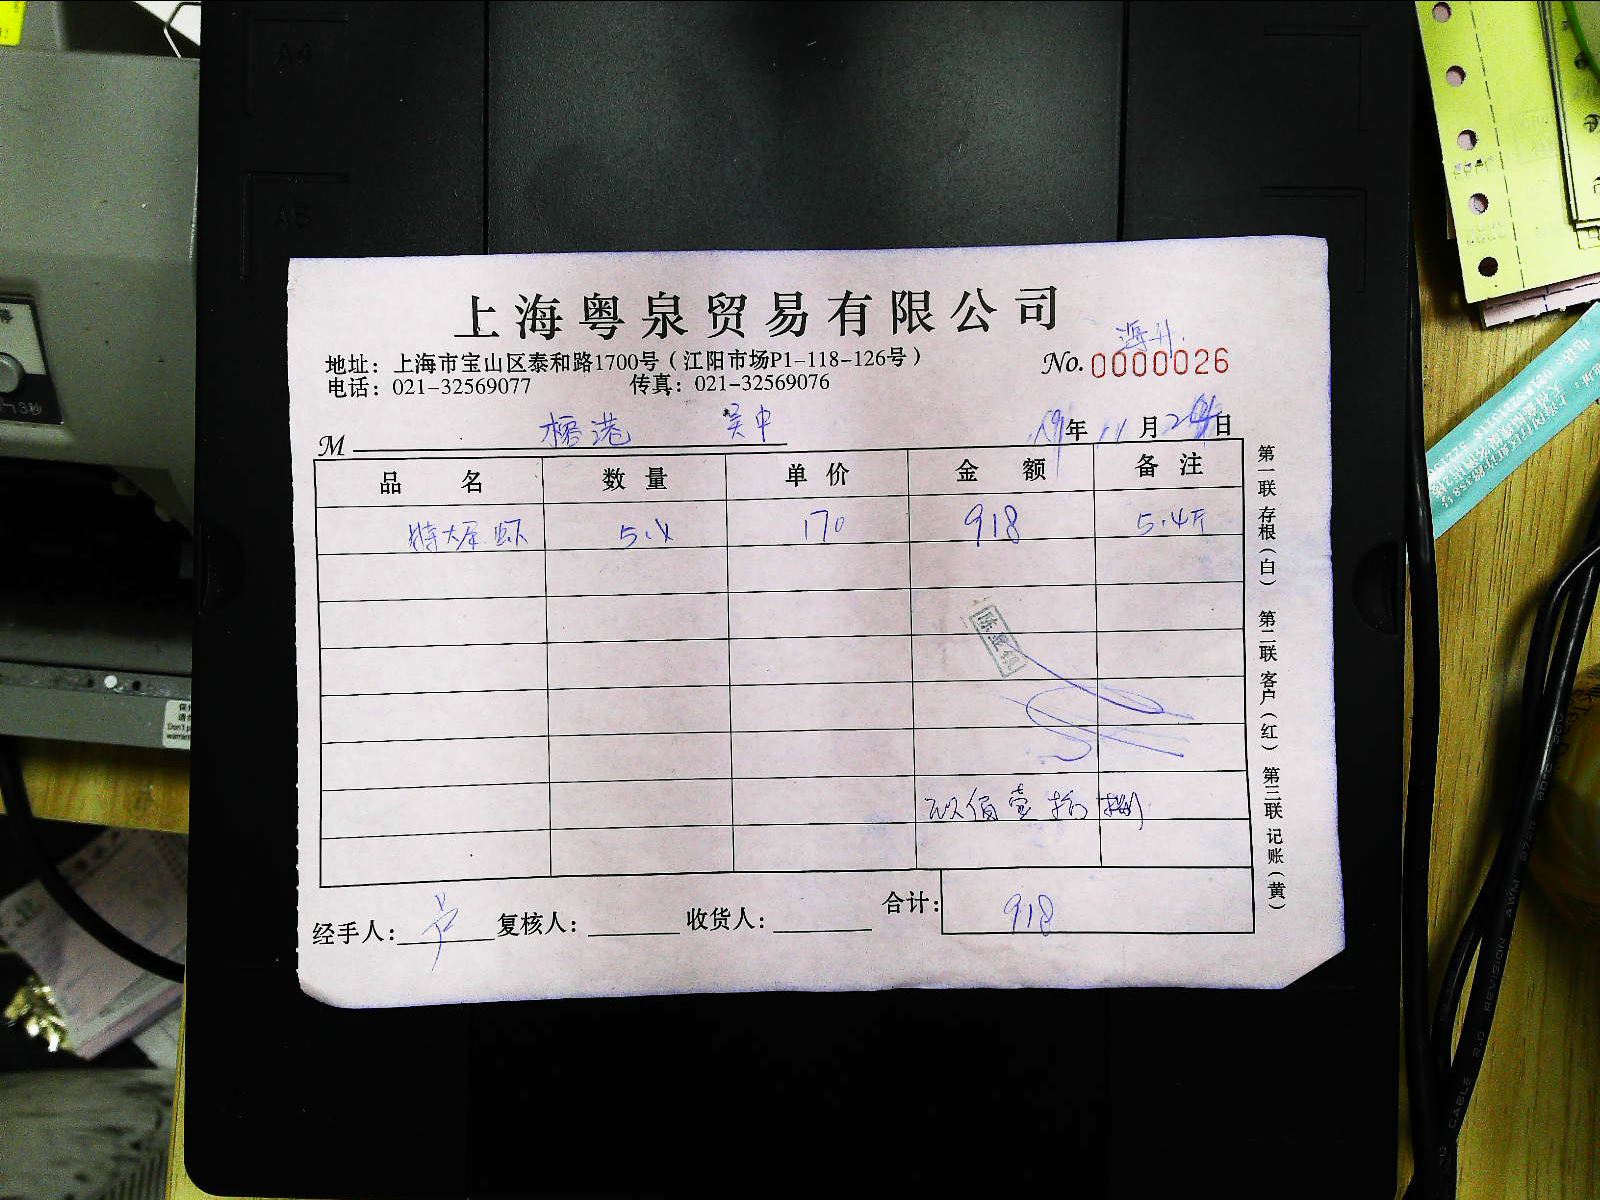 上海粤泉贸易有限公司
海斗
地址：上海市宝山区泰和路1700号（江阳市场P1-118-126号）
No. 0000026
电话：021-32569077 传真：021-32569076
M 榕港 吴中
19年11月24日
品名 数量 单价 金额 备注
特大尾虾 5.4 170 918 5.4斤
玖佰壹拾捌
经手人： 复核人： 收货人： 合计：918
第一联 存根（白） 第二联 客户（红） 第三联 记账（黄）
A4
A5